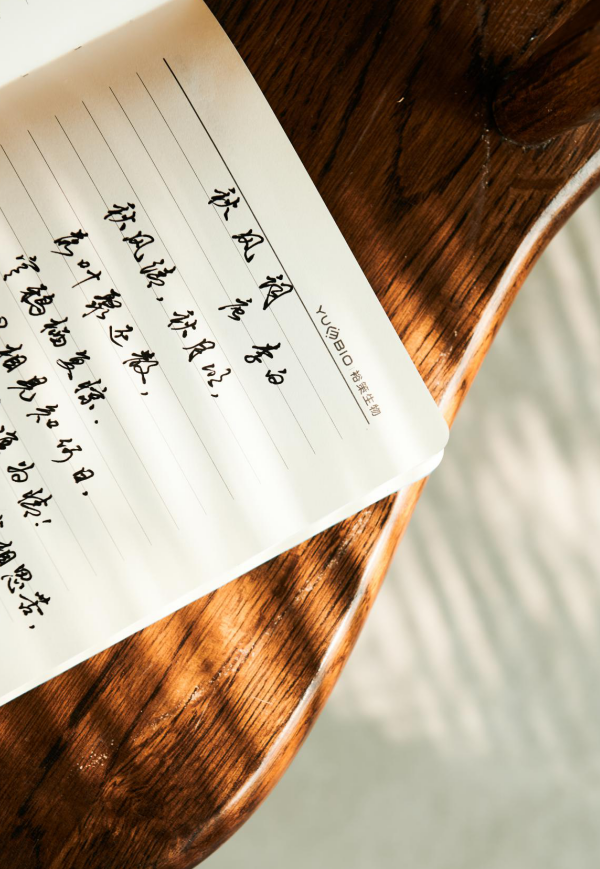 YUCEBIO 裕策生物
秋风词
唐 李白
秋风清,秋月明,
落叶聚还散,
寒鸦栖复惊.
相见知何日,
难为情!
相思苦,